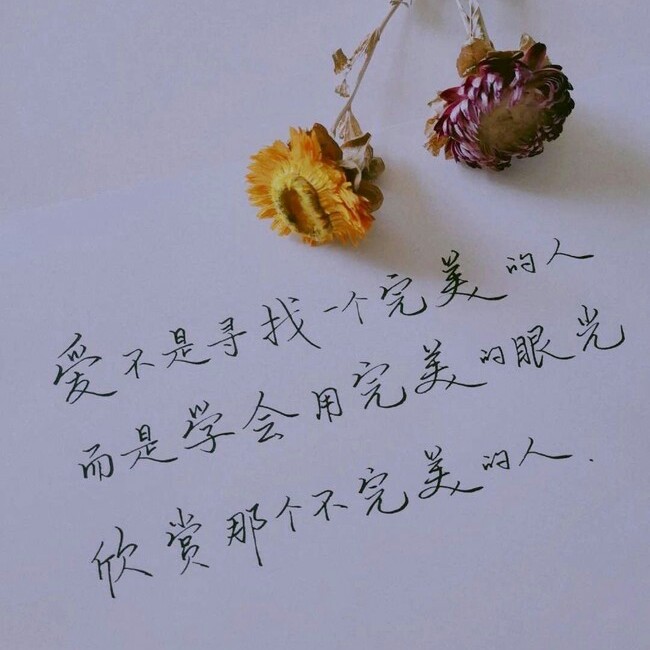 爱不是寻找一个完美的人
而是学会用完美的眼光
欣赏那个不完美的人.